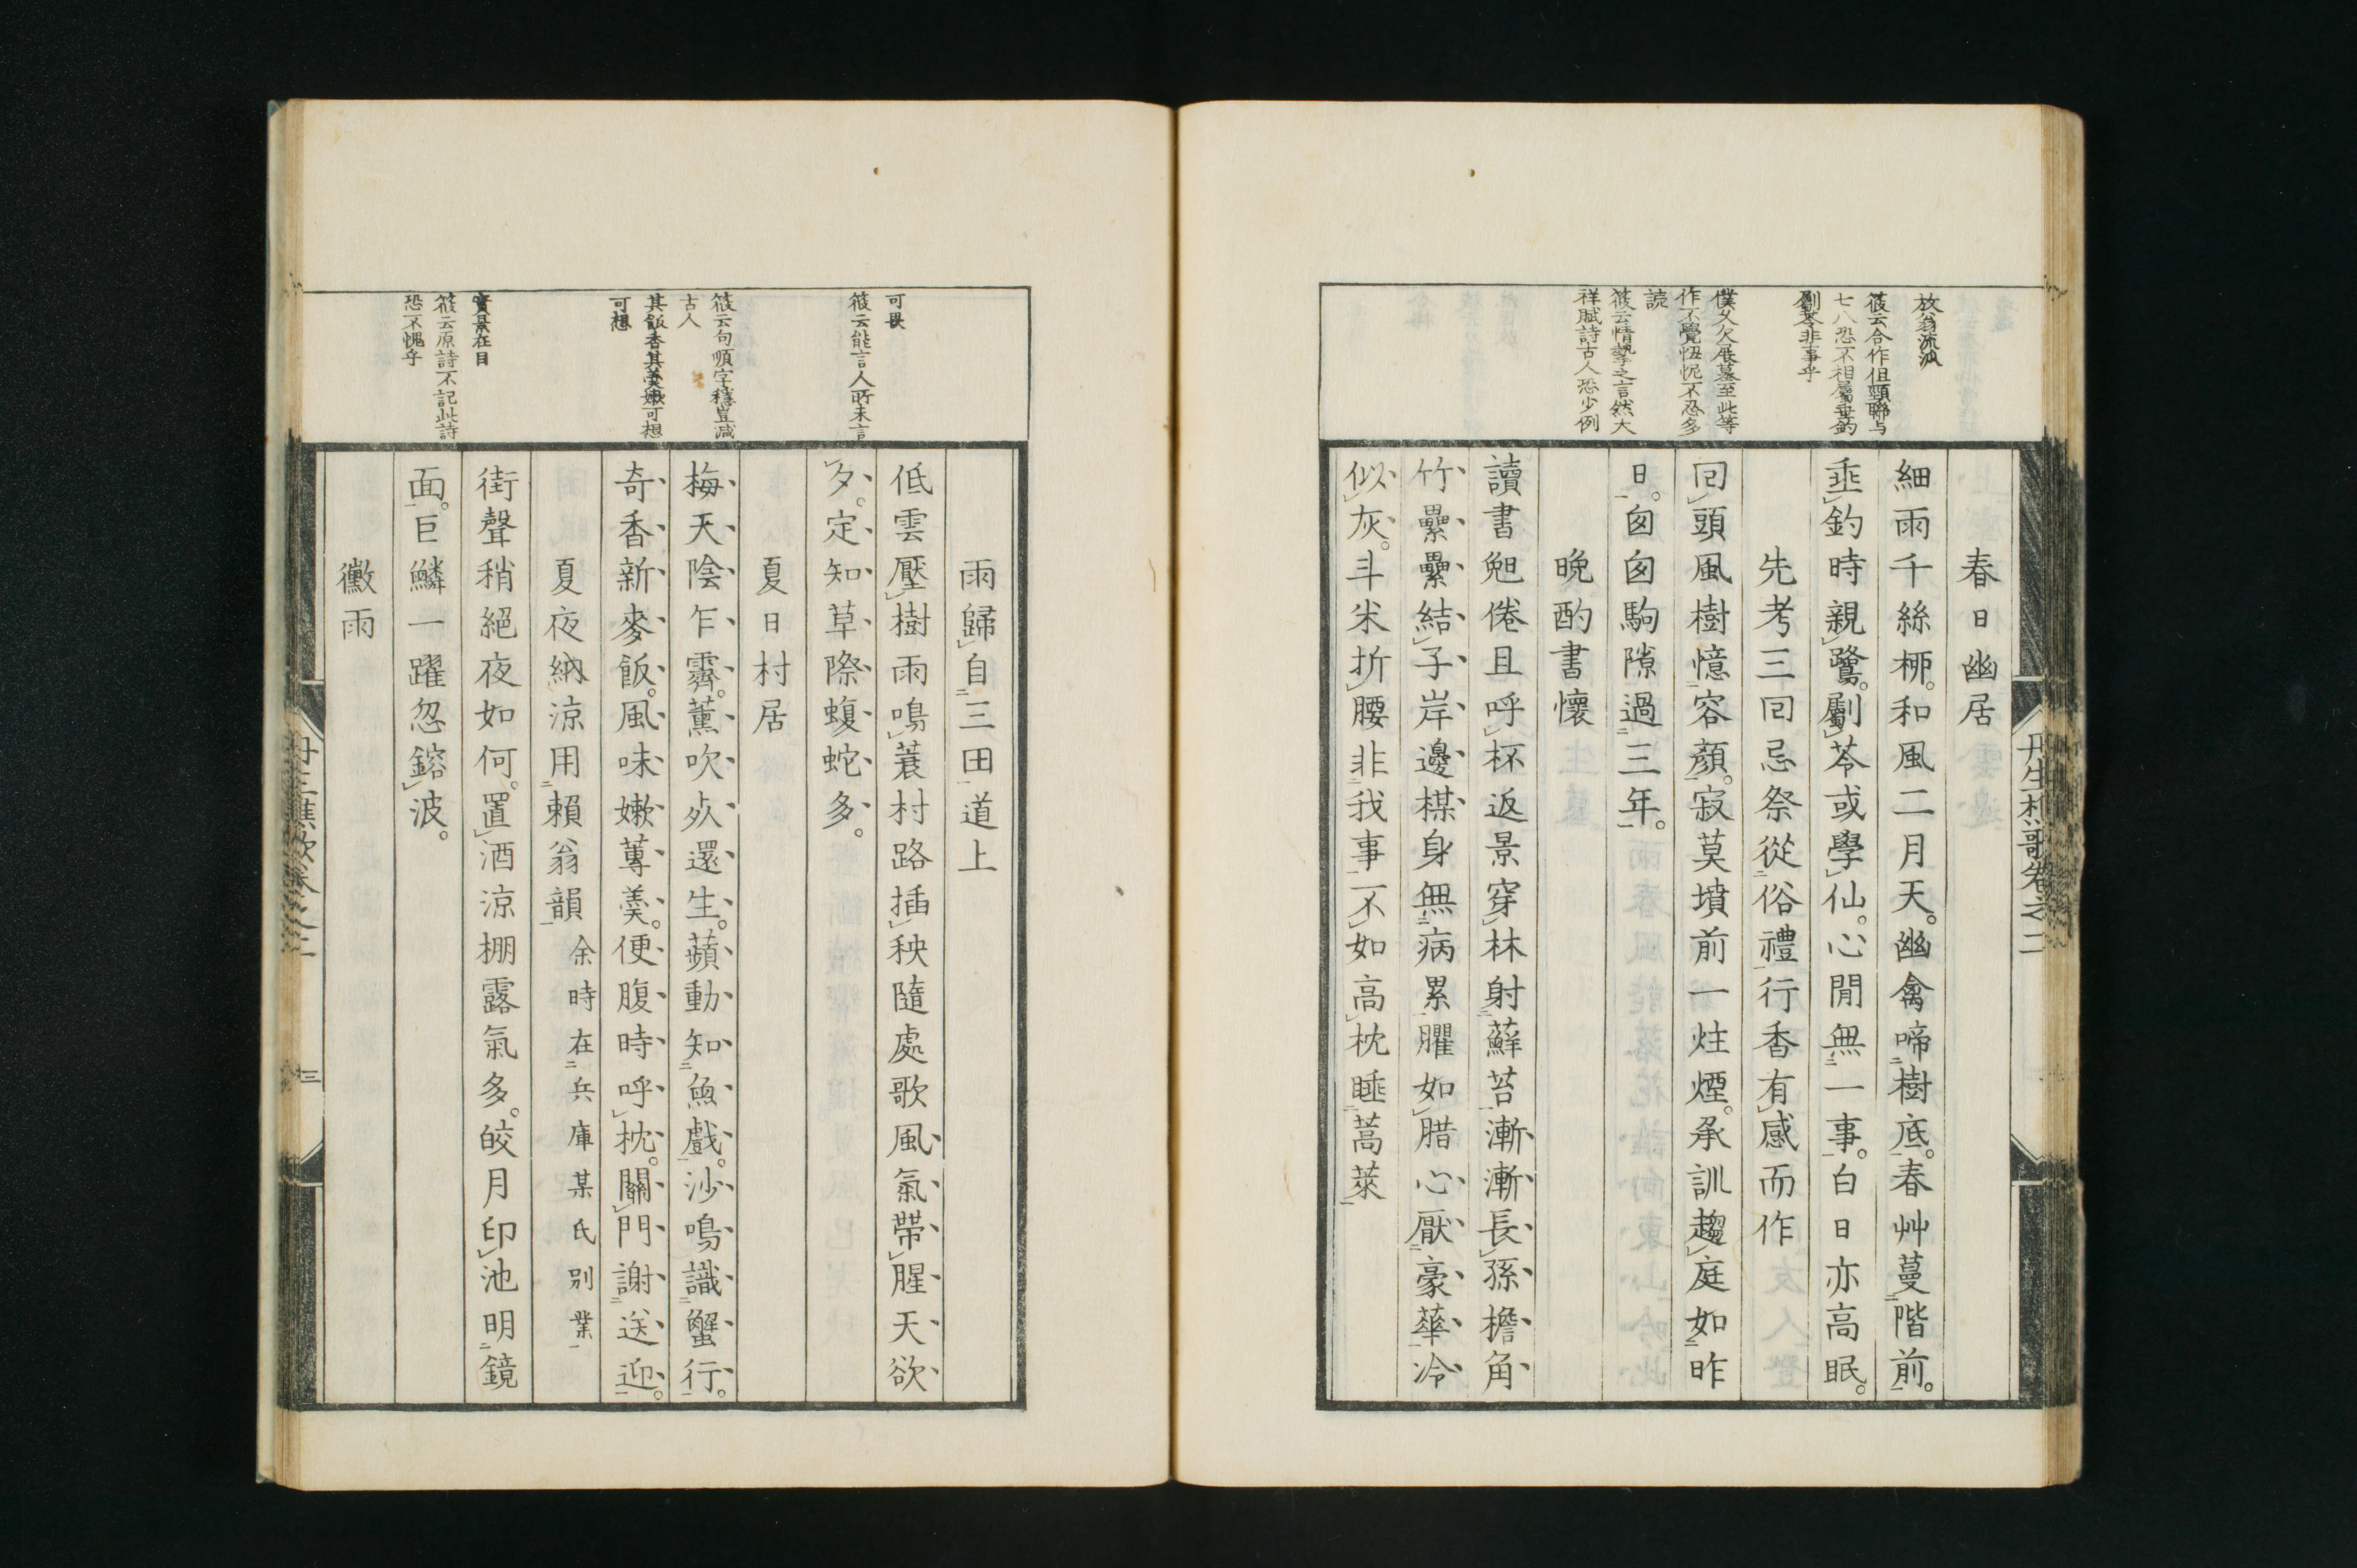 放翁流派
筱云合作但頸聯与
七八恐不相屬垂釣
劚苓非事乎
僕父欠展墓至此等
作不覺忸怩不忍多
読
筱云情摯之言然大
祥賦詩古人恐少例
春日幽居
細雨千絲柳。和風二月天。幽禽啼樹底。春艸蔓階前。
垂釣時親鷺。劚苓或學仙。心閒無一事。白日亦高眠。
先考三回忌祭從俗禮行香有感而作
回頭風樹憶容顏。寂莫墳前一炷煙。承訓趨庭如昨
日。匆匆駒隙過三年。
晩酌書懷
讀書勉倦且呼杯返景穿林射蘚苔漸漸長孫擔角
竹纍纍結子岸邊楳身無病累臞如腊心厭豪華冷
似灰。斗米折腰非我事不如高枕睡蒿萊
丹生樵歌卷之二
可畏
筱云能言人所未言
筱云句順字穩豈減
古人
其飯香其羹嫩可想
可想
實景在目
筱云原詩不記此詩
恐不愧乎
雨歸自三田道上
低雲壓樹雨鳴蓑村路插秧隨處歌風氣帶腥天欲
夕。定知草際蝮蛇多。
夏日村居
梅天陰乍霽。薰吹夾還生。蘋動知魚戲。沙鳴識蟹行。
奇香新麥飯。風味嫩蓴羹。便腹時呼枕。關門謝送迎。
夏夜納涼用賴翁韻 余時在兵庫某氏別業
街聲稍絕夜如何。置酒涼棚露氣多。皎月印池明鏡
面。巨鱗一躍忽鎔波。
黴雨
丹生樵歌卷之二
三